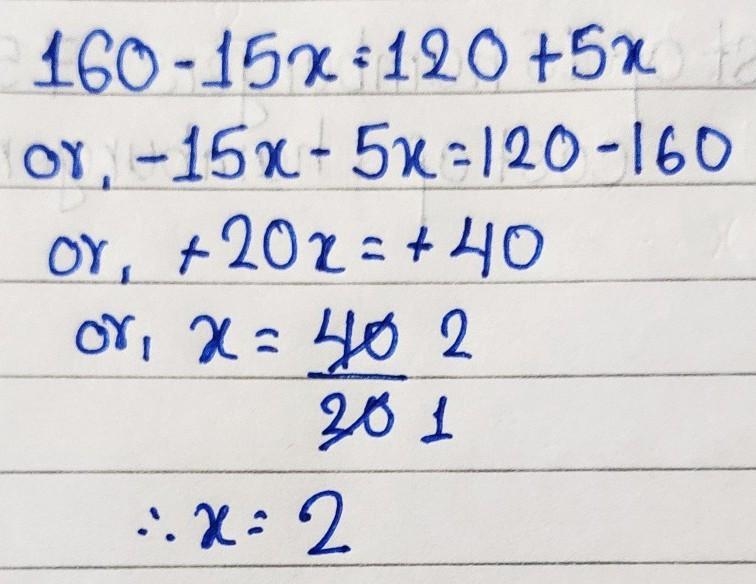 160-15x=120+5x
or, -15x-5x=120-160
or, +20x=+40
or, x= 40 2
20 1
∴ x= 2